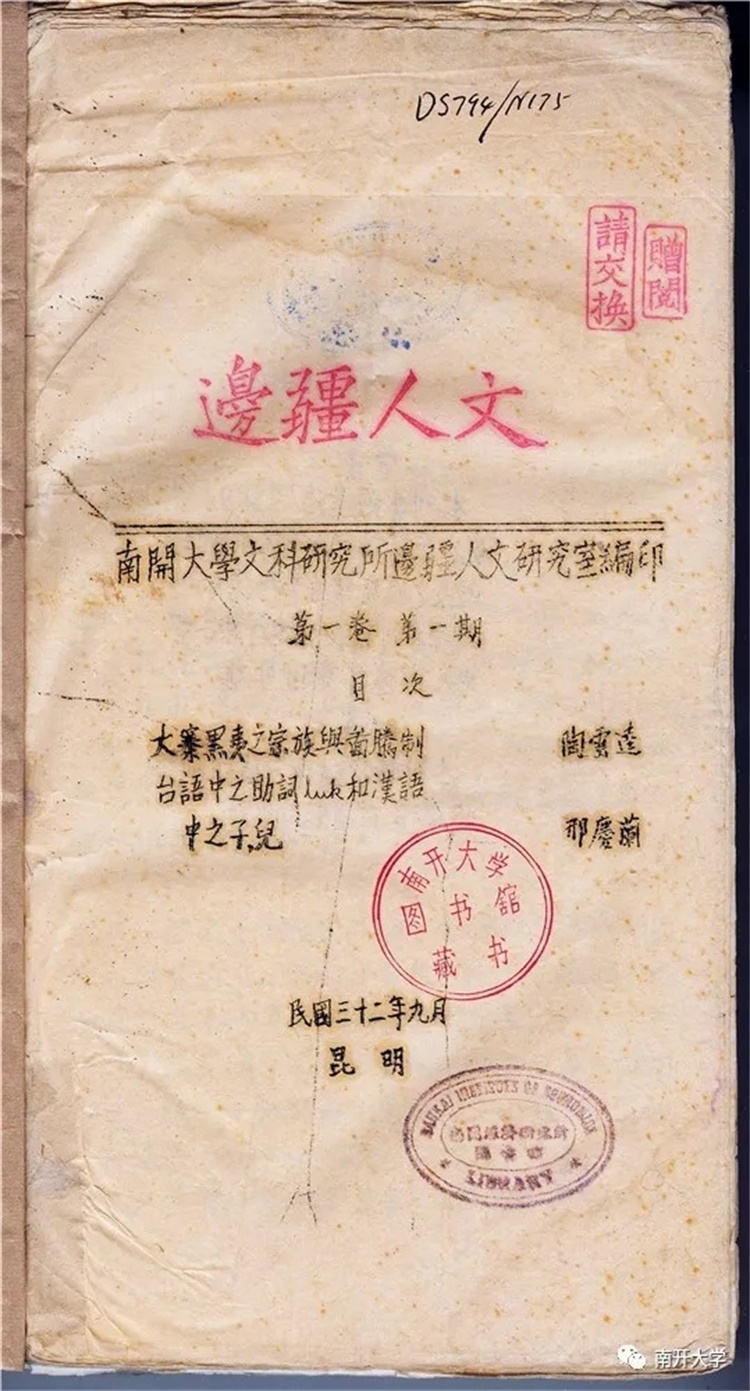 DS794/N175
請交換
贈閱
邊疆人文
南開大學文科研究所邊疆人文研究室編印
第一卷 第一期
目 次
大寨黑夷之宗族與圖騰制 陶雲逵
台語中之助詞luk和漢語
中之子,兒 邢慶蘭
南开大学
图书館
藏书
民國三十二年九月
昆 明
NANKAI INSTITUTE OF ECONOMICS
LIBRARY
南开大学